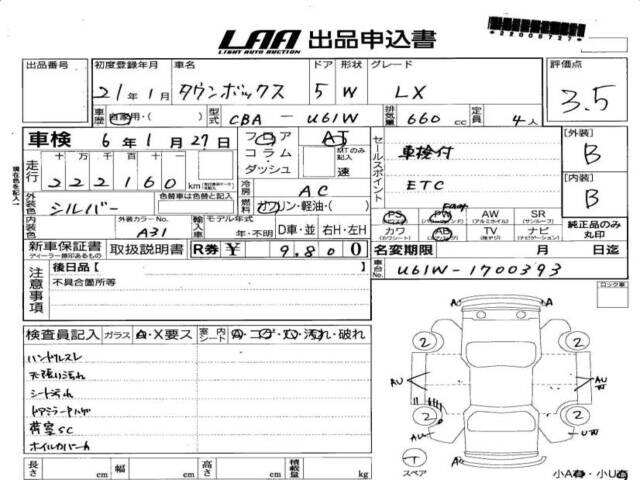 LAA 出品申込書
LIGHT AUTO AUCTION
*22008727*
出品番号 初度登録年月 車名 ドア 形状 グレード 評価点
21年1月 タウンボックス 5 W LX 3.5
車歴 自家用・( ) 型式 CBA - U61W 排気量 660 cc 定員 4人
車検 6年1月27日 フロア AT
コラム MTのみ記入
ダッシュ 速
セールスポイント 車検付
ETC
[外装]
B
[内装]
B
現在色を記入
走行 十万千百十
222160 km
冷房 AC
外装色 シルバー 色替車は色替と記入 燃料 ガソリン・軽油・( )
内装色 外装カラーNo. A31 輸入車 モデル年式 年・不明 D車・並 右H・左H
PS PW AW SR
(パワーウインド) (アルミホイル) (サンルーフ)
カワ AB TV ナビ
(カワシート) (ナビゲーション)
純正品のみ丸印
新車保証書 取扱説明書 R券 ¥ 9,800
ディーラー捺印あるもの
名変期限 月 日迄
車台No. U61W-1700393
注意事項 後日品 [ ]
不具合箇所等
ロック車
検査員記入 ガラス A・X要ス 室内シート A・コゲ・穴・汚れ・破れ
ハンドルスレ
天張り汚れ
シート汚れ
ドアミラーキハゲ
荷室SC
ホイルカバーA
A A
2 2
AU AU
2 2
AU UW
T
スペア
A
長さ cm 幅 cm 高さ cm 積載量 kg
小A有・小U有